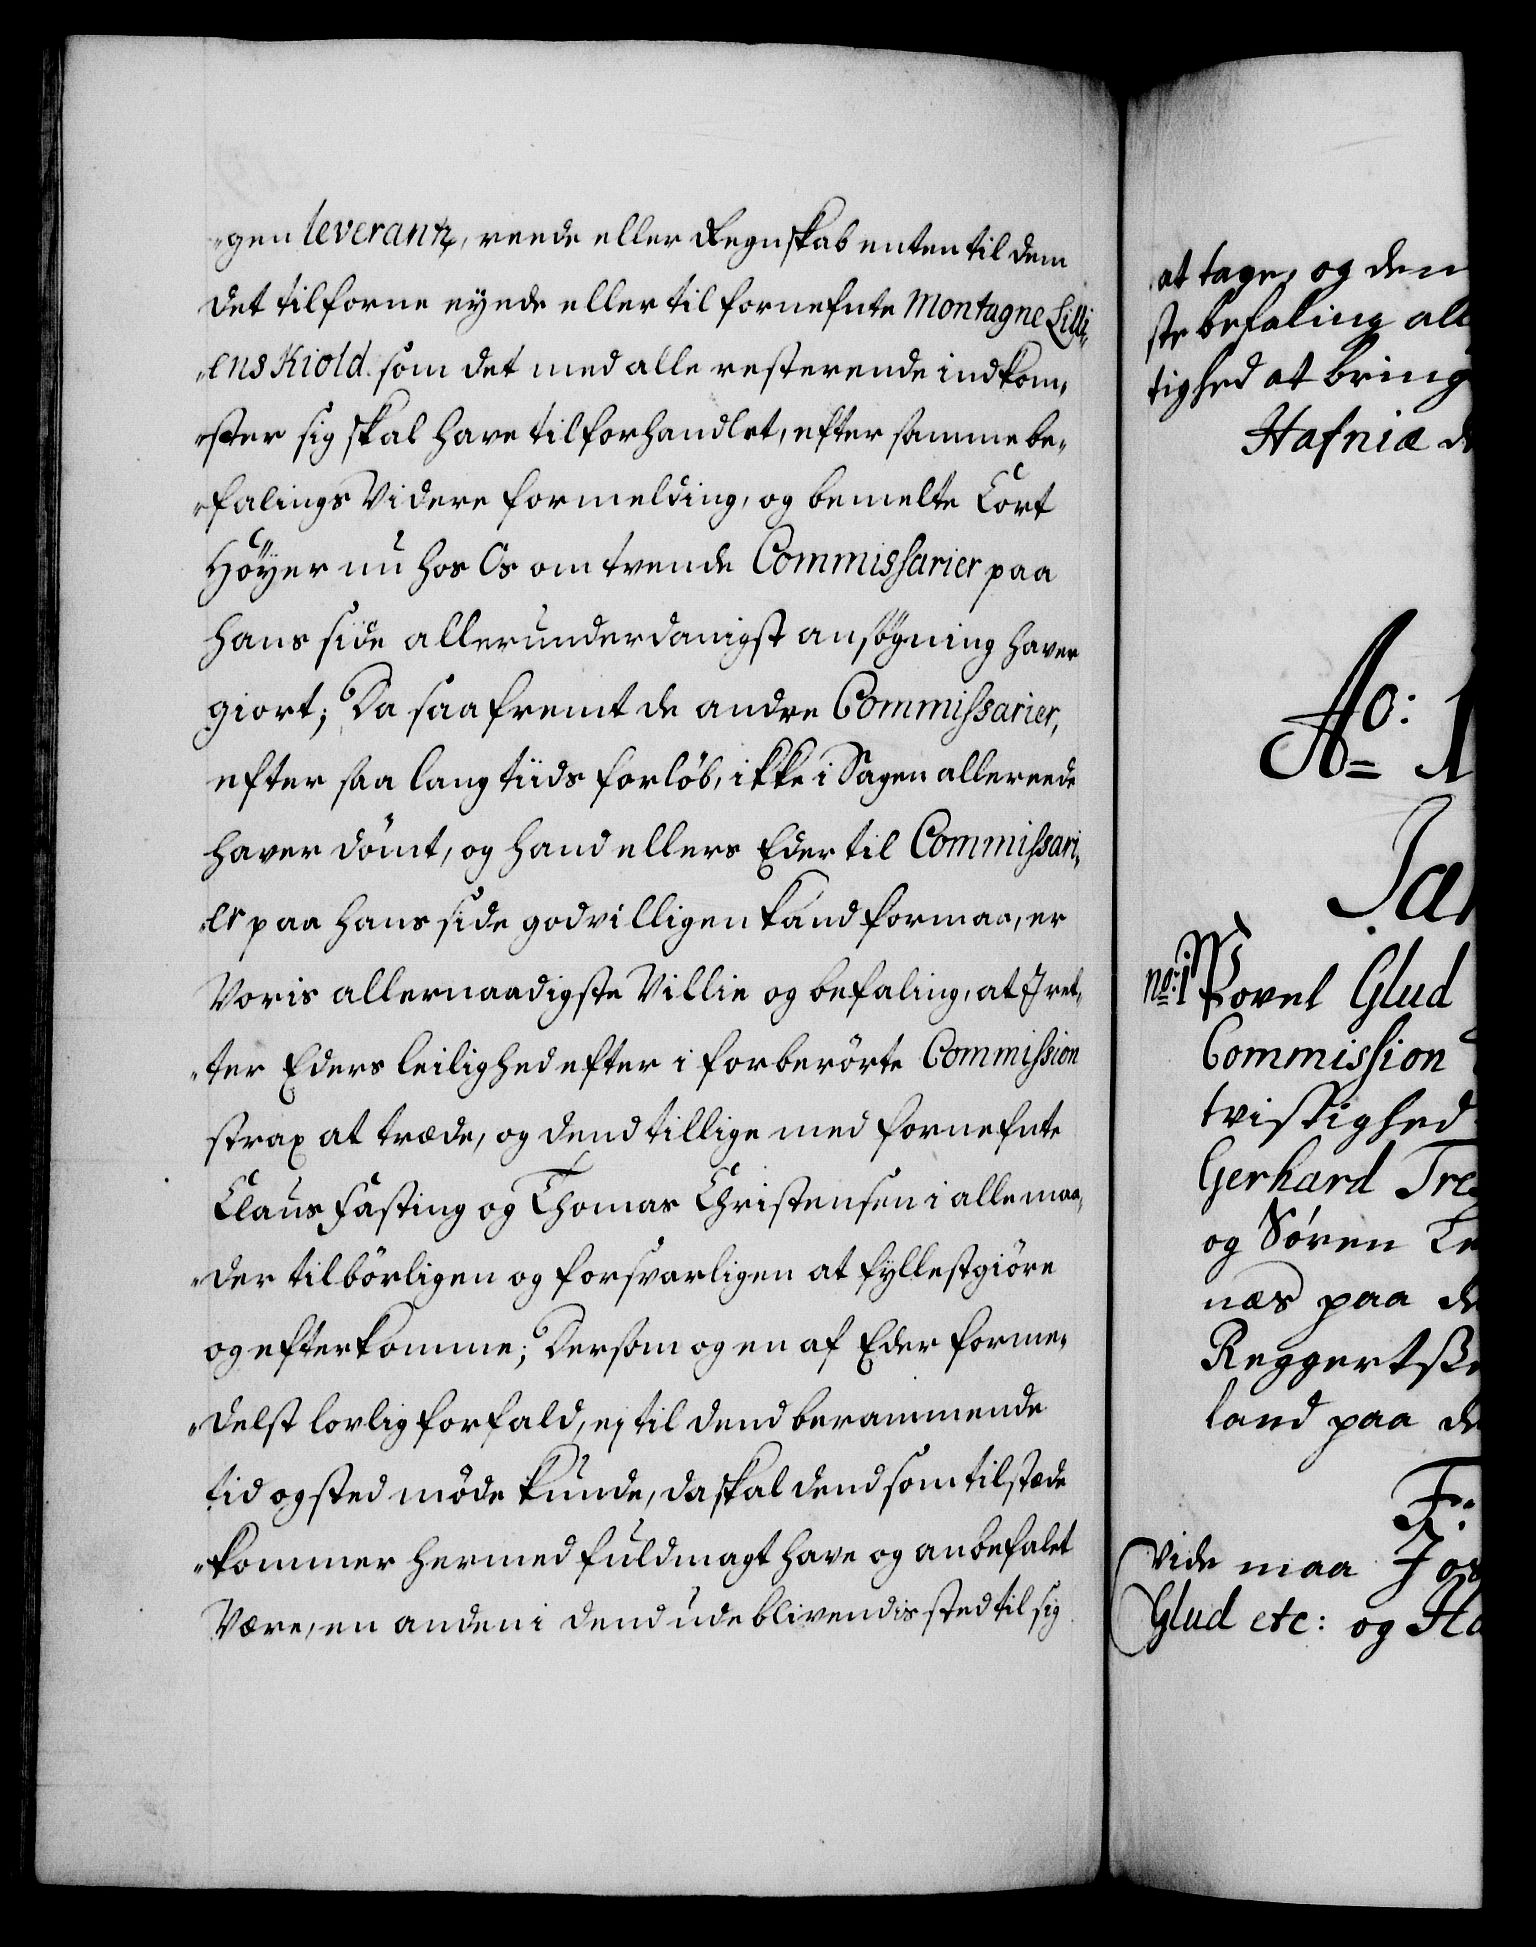 "gen leverantz, reede eller Regnskab enten til dem
det tilforne eyede eller til fornefnte Montagne Lilli,
"enskiold som det med alle resterende indkom,
"ster sig skal have tilforhandlet, efter samme be,
"falings Videre formelding, og bemelte Cort
Höyer nu hos Os om tvende Commissarier paa
hans side allerunderdanigst ansøgning haver
giort; Da saafremt de andre Commissarier,
efter saa lang tiids forløb, ikke i Sagen allereede
haver dömt, og hand ellers Eder til Commissari,
"er paa hans side godvilligen kand formaa, er
Voris allernaadigste Villie og befaling, at I ret,
"ter Eders leilighed efter i forberörte Commission
strax at træde, og dend tillige med fornefnte
Claus Fasting og Thomas Christensen i alle maa,
"der tilbörligen og forsvarligen at fyllestgiöre
og efterkomme; Dersom og en af Eder forme,
"delst lovlig forfald, ej til dend berammende
tid og sted möde kunde, da skal dend som tilstæde
"kommer hermed fuldmagt have og anbefalet
Være, en anden i dend udeblivendis sted til sig
at tage, og den
ste befaling all
tighed at bring
Hafniæ d
Ao: 1
Jan
no: 1 Povel Glud
Commission
tvistighed
Gerhard Tre
og Søren Te
næs paa de
Reggertsøe
land paa de
F:
Vide maa I os
Glud etc: og Ha